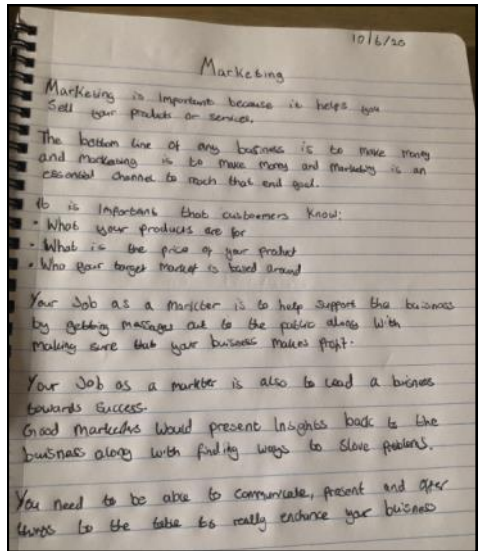 10/6/20
Marketing
Marketing is Important because it helps you
Sell your products or services.
The bottom line of any business is to make money
and marketing is to make money and marketing is an
essential channel to reach that end goal.
It is Important that customers Know:
• What your products are for
• What is the price of your product
• Who your target market is based around
Your Job as a markter is to help support the buisness
by getting massages out to the public along with
making sure that your buisness makes profit.
Your Job as a markter is also to lead a buisness
towards Success.
Good marketers Would present Insights back to the
buisness along with finding ways to Slove problems.
You need to be able to communicate, present and offer
things to the table to really enchance your buisness